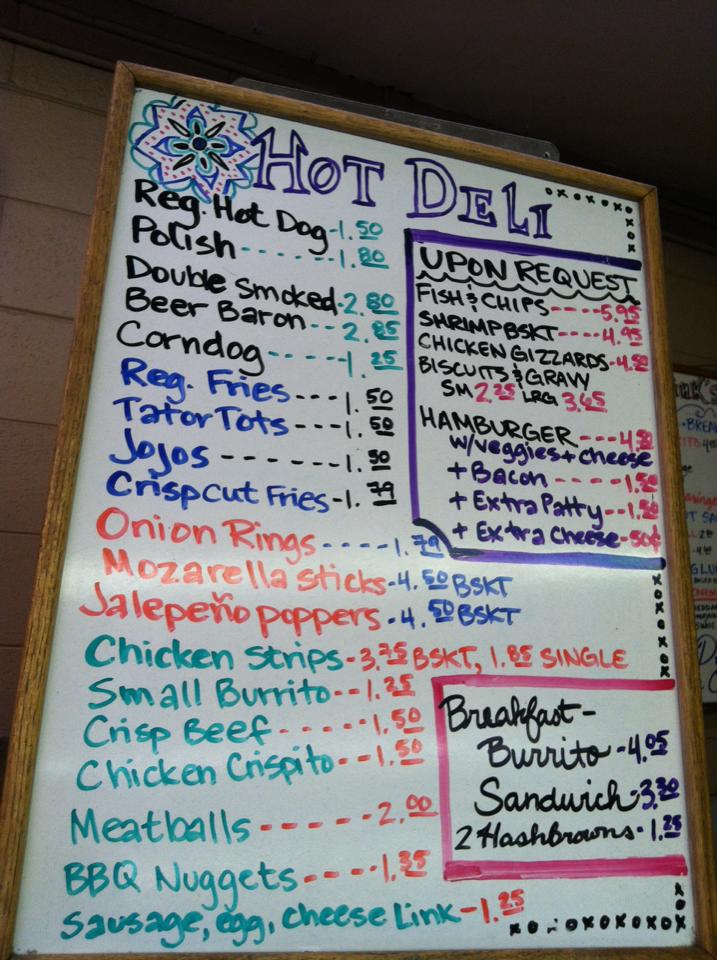 HOT DELI
Reg. Hot Dog -1.50
Polish ------ 1.80
Double Smoked-2.80
Beer Baron--2.85
Corndog -----1.25
Reg. Fries---1.50
Tator Tots ---1.50
Jojos ------1.50
Crispcut Fries-1.79
Onion Rings----1.79
Mozarella sticks-4.50 BSKT
Jalepeño poppers-4.50 BSKT
Chicken Strips-3.75 BSKT, 1.85 SINGLE
Small Burrito--1.25
Crisp Beef-----1.50
Chicken Crispito--1.50
Meatballs -----2.00
BBQ Nuggets----1.35
Sausage, egg, cheese Link-1.25
UPON REQUEST
FISH & CHIPS----5.95
SHRIMP BSKT----4.95
CHICKEN GIZZARDS-4.50
BISCUITS & GRAVY
SM 2.25 LRG 3.65
HAMBURGER---4.50
w/veggies+cheese
+ Bacon----1.50
+ Extra Patty--1.50
+ Extra Cheese-50¢
Breakfast-
Burrito-4.05
Sandwich-3.30
2 Hashbrowns-1.25